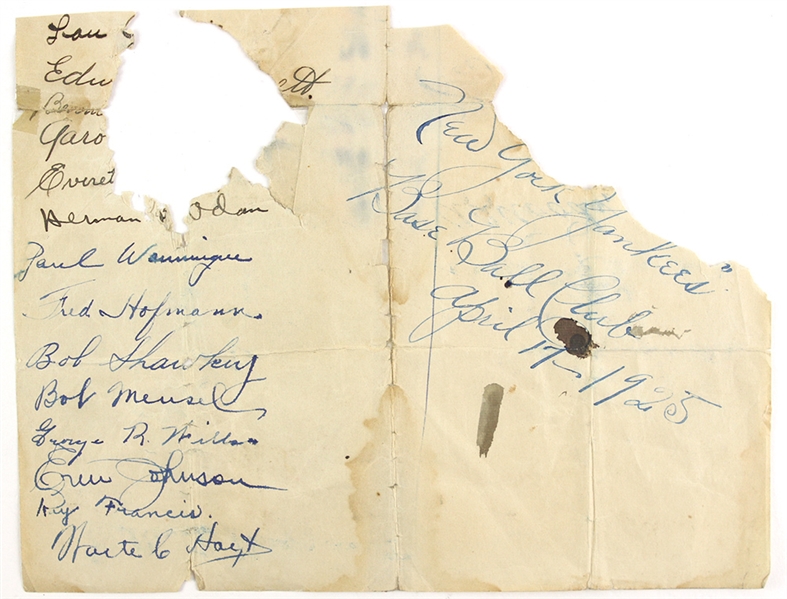 Lou
Edw  ett.
Garo
Everet
Herman
Paul Wanninger
Fred Hofmann.
Bob Shawkey
Bob Meusel
George R.
Ernie Johnson
Ray Francis.
Waite C Hoyt
New York Yankees"
Base. Ball Club
April 17- 1925